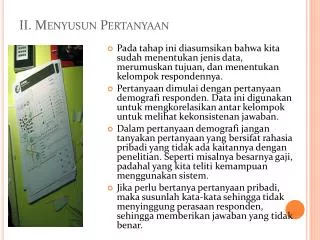 II. MENYUSUN PERTANYAAN
Pada tahap ini diasumsikan bahwa kita
sudah menentukan jenis data,
merumuskan tujuan, dan menentukan
kelompok respondennya.
Pertanyaan dimulai dengan pertanyaan
demografi responden. Data ini digunakan
untuk mengkorelasikan antar kelompok
untuk melihat kekonsistenan jawaban.
Dalam pertanyaan demografi jangan
tanyakan pertanyaan yang bersifat rahasia
pribadi yang tidak ada kaitannya dengan
penelitian. Seperti misalnya besarnya gaji,
padahal yang kita teliti kemampuan
menggunakan sistem.
Jika perlu bertanya pertanyaan pribadi,
maka susunlah kata-kata sehingga tidak
menyinggung perasaan responden,
sehingga memberikan jawaban yang tidak
benar.